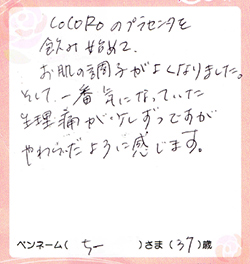 CoCoRoのプラセンタを
飲み始めて、
お肌の調子がよくなりました。
そして、一番気になっていた
生理痛が少しずつですが
やわらいだように感じます。
ペンネーム( ちー )さま(37)歳